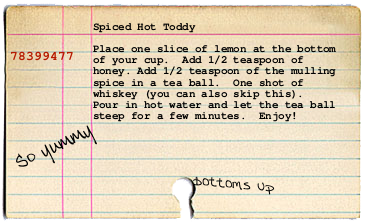 Spiced Hot Toddy
78399477
Place one slice of lemon at the bottom
of your cup. Add 1/2 teaspoon of
honey. Add 1/2 teaspoon of the mulling
spice in a tea ball. One shot of
whiskey (you can also skip this).
Pour in hot water and let the tea ball
steep for a few minutes. Enjoy!
So yummy
Bottoms up